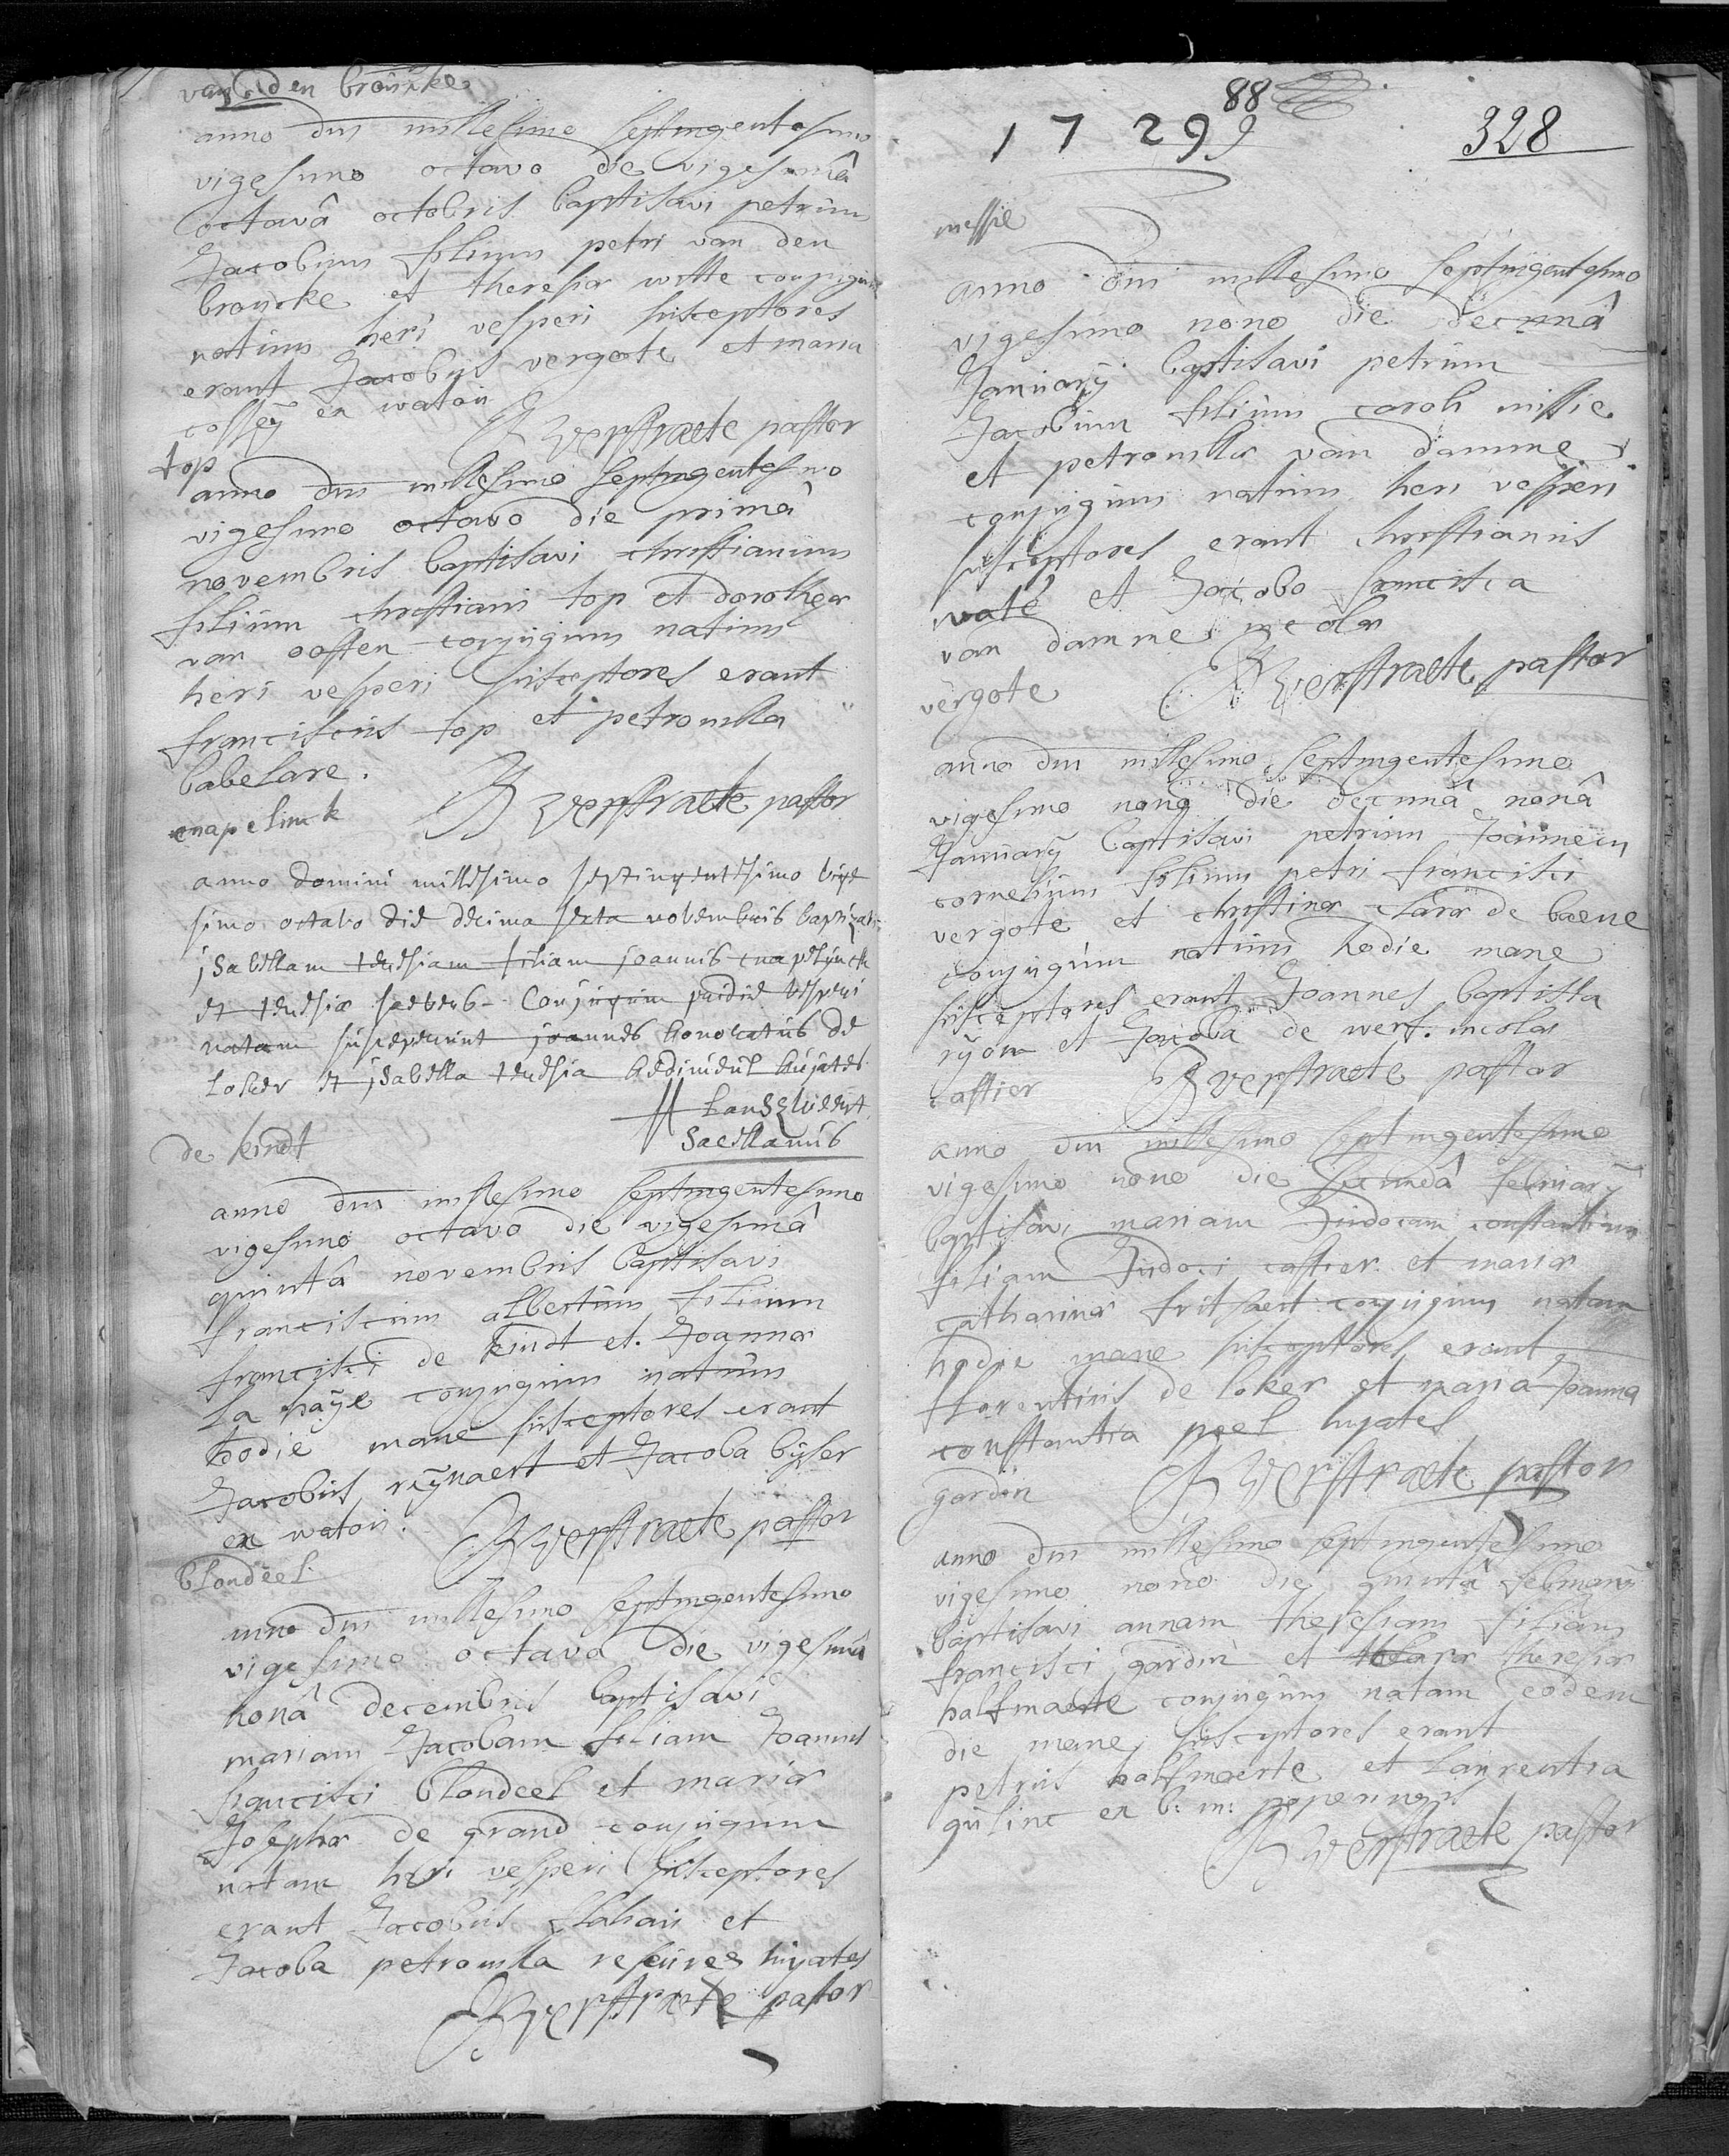 van den broucke
anno dni millesimo septingentesimo
vigesimo octavo die vigesimâ
octavâ octobris baptisavi petrum
Jacobum filium petri van den
broucke et theresiæ witte conjugum
natum heri vesperi susceptores
erant Jacobus vergote et maria
cossey ex watou
J verstraete pastor
top
anno dni millesimo septingentesimo
vigesimo octavo die primâ
novembris baptisavi christianum
filium christiani top et dorotheæ
van oosten conjugum natum
heri vesperi susceptores erant
franciscus top et petronilla
babelare.
J verstraete pastor
cnapelinck
anno domini millesimo septingentesimo vige
simo octavo die decima sexta novembris baptizavi
isabellam theresiam filiam joannis cnapelynck
et theresiæ conjugum pridie vesperi
natam susceperunt joannes honoratus de
loker et isabella theresia hujates
Landzvieert
sacellanus
de kindt
anno dni millesimo septingentesimo
vigesimo octavo die vigesimâ
quintâ novembris baptisavi
franciscum albertum filium
francisci de kindt et Joannæ
la haÿe conjugum natum
hodie mane susceptores erant
Jacobus reÿnaert et Jacoba bÿser
ex watou.
J verstraete pastor
blondeel
anno dni millesimo septingentesimo
vigesimo octavo die vigesimâ
nonâ decembris baptisavi
mariam Jacobam filiam Joannis
francisci blondeel et mariæ
Josephæ de grand conjugum
natam heri vesperi susceptores
erant Jacobus flahau et
Jacoba petronilla hujates
J verstraete pastor
88
1729 9
328
messie
anno dni millesimo septingentesimo
vigesimo nono die decimâ
Januarÿ baptisavi petrum
Jacobum filium caroli missie
et petronillæ van damme
conjugum natum heri vesperi
susceptores erant christianus
waté et Jacoba francisca
van damme incolæ
J verstraete pastor
vergote
anno dni millesimo septingentesimo
vigesimo nono die decimâ nonâ
Januarÿ baptisavi petrum Joannem
cornelium filium petri francisci
vergote et christinæ claræ de baene
conjugum natum hodie mane
susceptores erant Joannes baptista
rÿon et Jacoba de werf. incolæ
J verstraete pastor
cassier
anno dni millesimo septingentesimo
vigesimo nono die secundâ februarÿ
baptisavi mariam Judocam constantiam
filiam Judoci cassier et mariæ
catharinæ fritsaert conjugum natam
hodie mane susceptores erant
florentius de loker et maria Joanna
constantia peel hujates
J verstraete pastor
gardin
anno dni millesimo septingentesimo
vigesimo nono die quintâ februarÿ
baptisavi annam theresiam filiam
francisci gardin et claræ theresiæ
halfmaerte conjugum natam eodem
die mane susceptores erant
petrus halfmaerte et laurentia
gulinc ex b: m: poperingis
J verstraete pastor